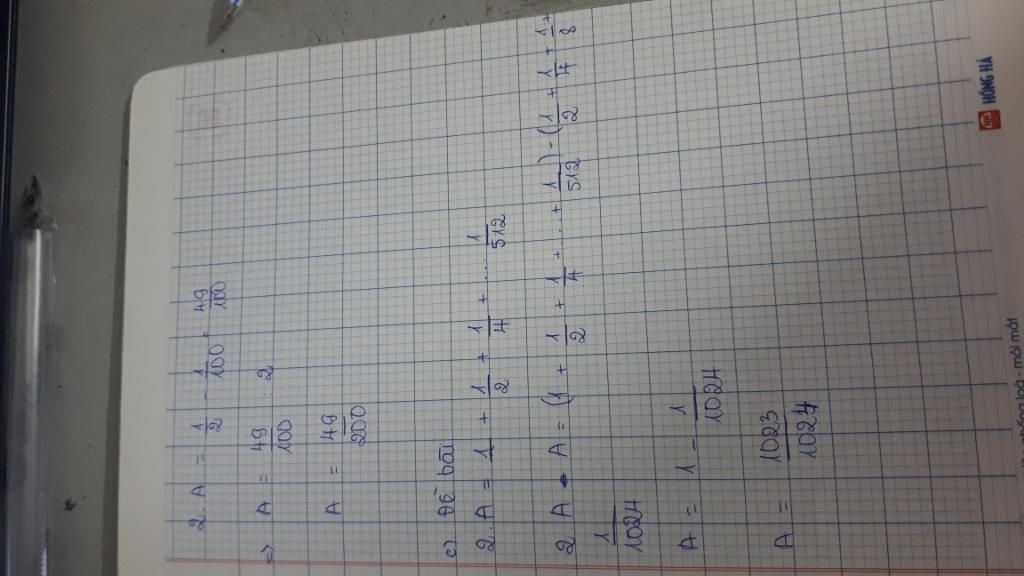 2. A = 1/2 - 1/100 = 49/100
=> A = 49/100 : 2
A = 49/200
c) Đề bài
2. A = 1 + 1/2 + 1/4 + ... 1/512
2. A - A = (1 + 1/2 + 1/4 + ... + 1/512) - (1/2 + 1/4 + 1/8 +
1/1024
A = 1 - 1/1024
A = 1023/1024
HỒNG HÀ